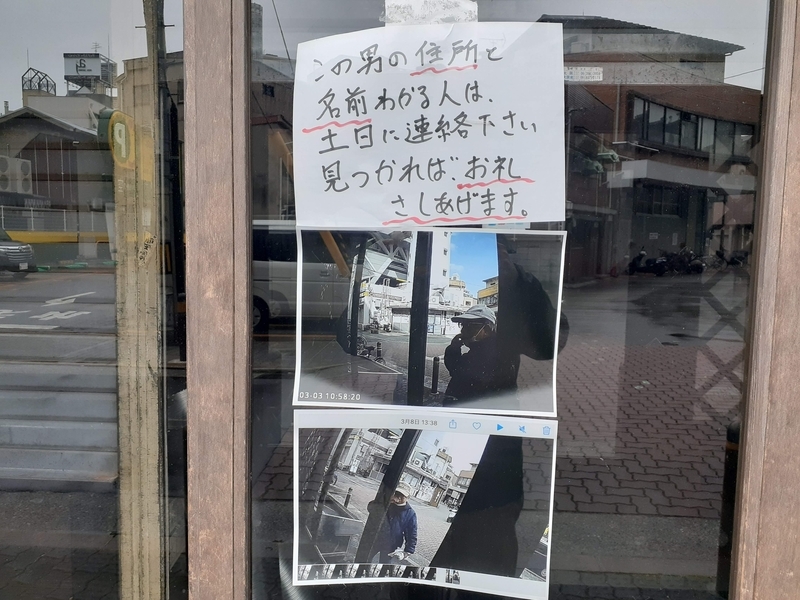 この男の住所と
名前わかる人は、
土日に連絡下さい
見つかれば、お礼
さしあげます。
03-03 10:58:20
3月8日 13:38
P